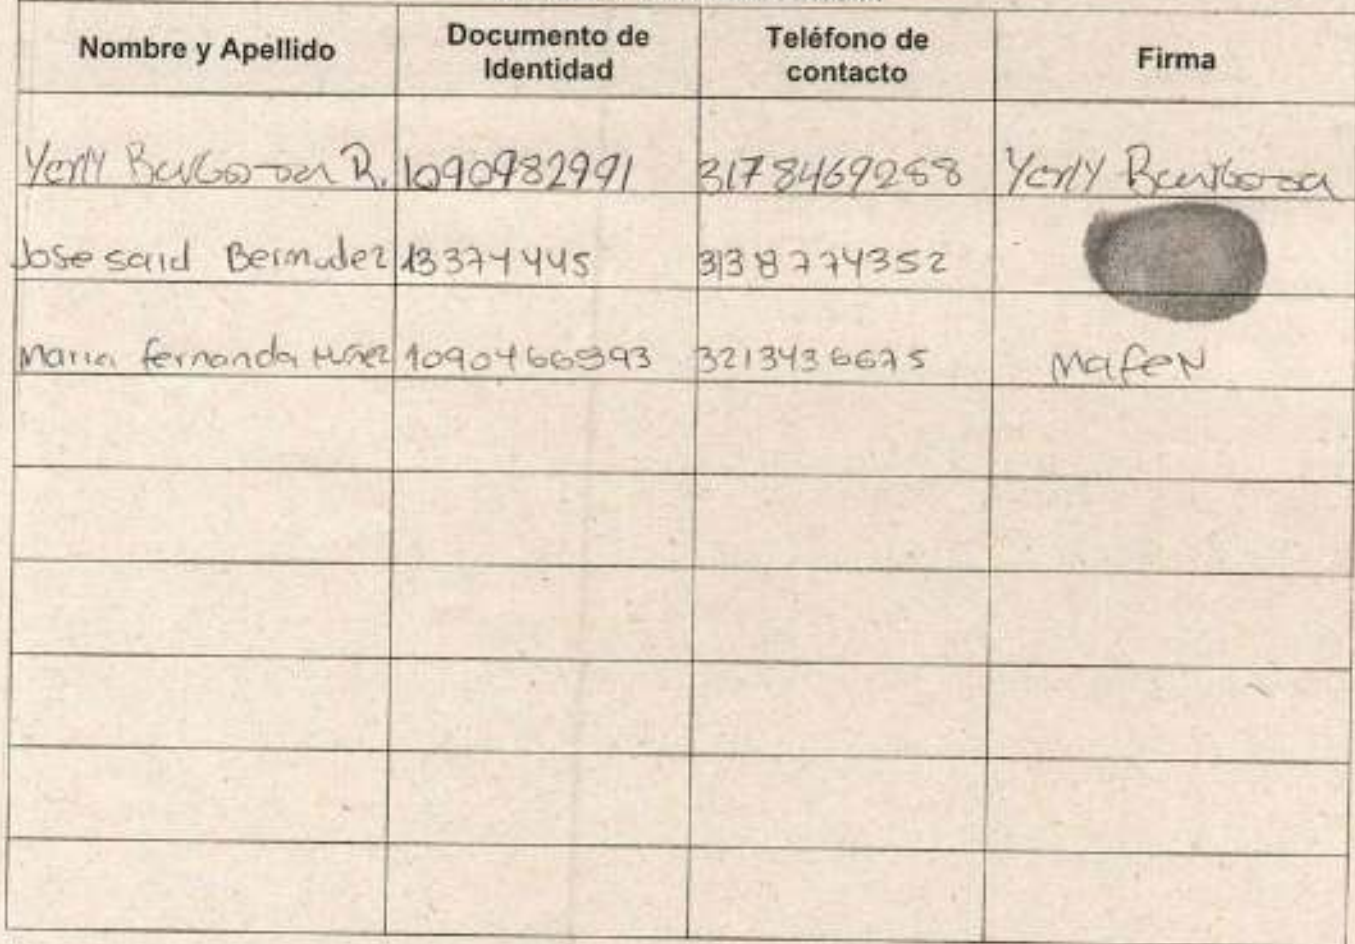 Nombre y Apellido Documento de Identidad Teléfono de contacto Firma
Yerly Barbosa R. 1090982991 3178469258 Yerly Barbosa
Jose said Bermudez 13374445 3138774352
Maria fernanda Núñez 3213436675 MafeN